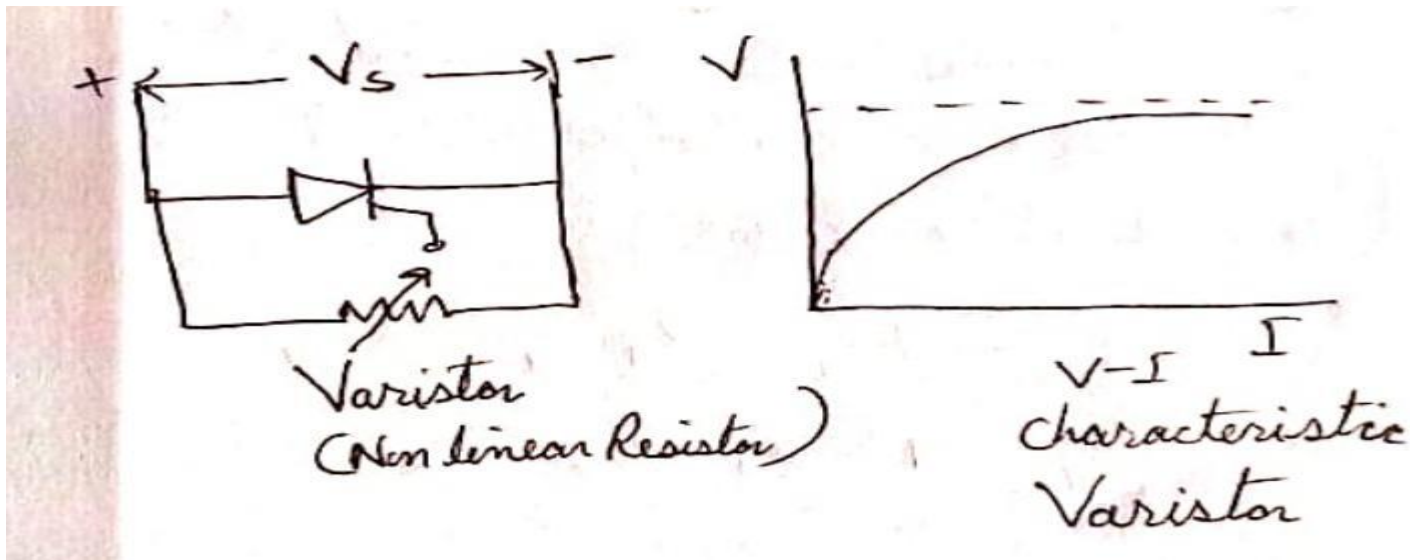 + Vs -
V
I
Varistor
(Non linear Resistor)
V-I
characteristic
Varistor